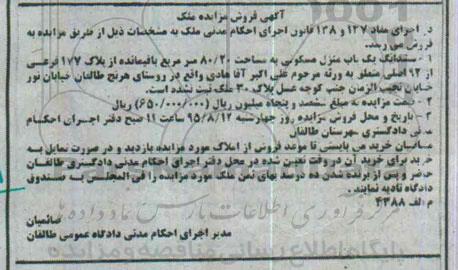 آگهی فروش مزایده ملک
در اجرای مفاد ۱۲۷ و ۱۳۸ قانون اجرای احکام مدنی ملک به مشخصات ذیل از طریق مزایده به
فروش می رسد.
۱- ششدانگ یک باب منزل مسکونی به مساحت ۸۰/۲۰ متر مربع باقیمانده از پلاک ۱۷۷ فرعی
از ۹۲ اصلی متعلق به ورثه مرحوم علی اکبر آقا هادی واقع در روستای هرنج طالقان خیابان نور
خیابان نجیب الزمان جنب کوچه عسل پلاک ۳۰ ملک ثبت نشده است.
۲- قیمت مزایده به مبلغ ششصد و پنجاه میلیون ریال (۶۵۰/۰۰۰/۰۰۰) ریال
۳- تاریخ و محل فروش مزایده روز چهارشنبه ۹۵/۸/۱۲ ساعت ۱۱ صبح دفتر اجرای احکام
مدنی دادگستری شهرستان طالقان
متقاضیان خرید می بایستی تا موعد فروش از املاک مورد مزایده بازدید و در صورت تمایل به
خرید برای خرید آن در وقت تعیین شده در محل دفتر اجرای احکام مدنی دادگستری طالقان
حاضر و پس از برنده شدن ده درصد بهای ثمن ملک مورد مزایده را فی المجلس به صندوق
دادگاه تادیه نمایند.
م الف ۴۳۸۸
صائمیان
مدیر اجرای احکام مدنی دادگاه عمومی طالقان
مرکز فرآوری اطلاعات پارس نماد داده ها
پایگاه اطلاع رسانی مناقصه و مزایده